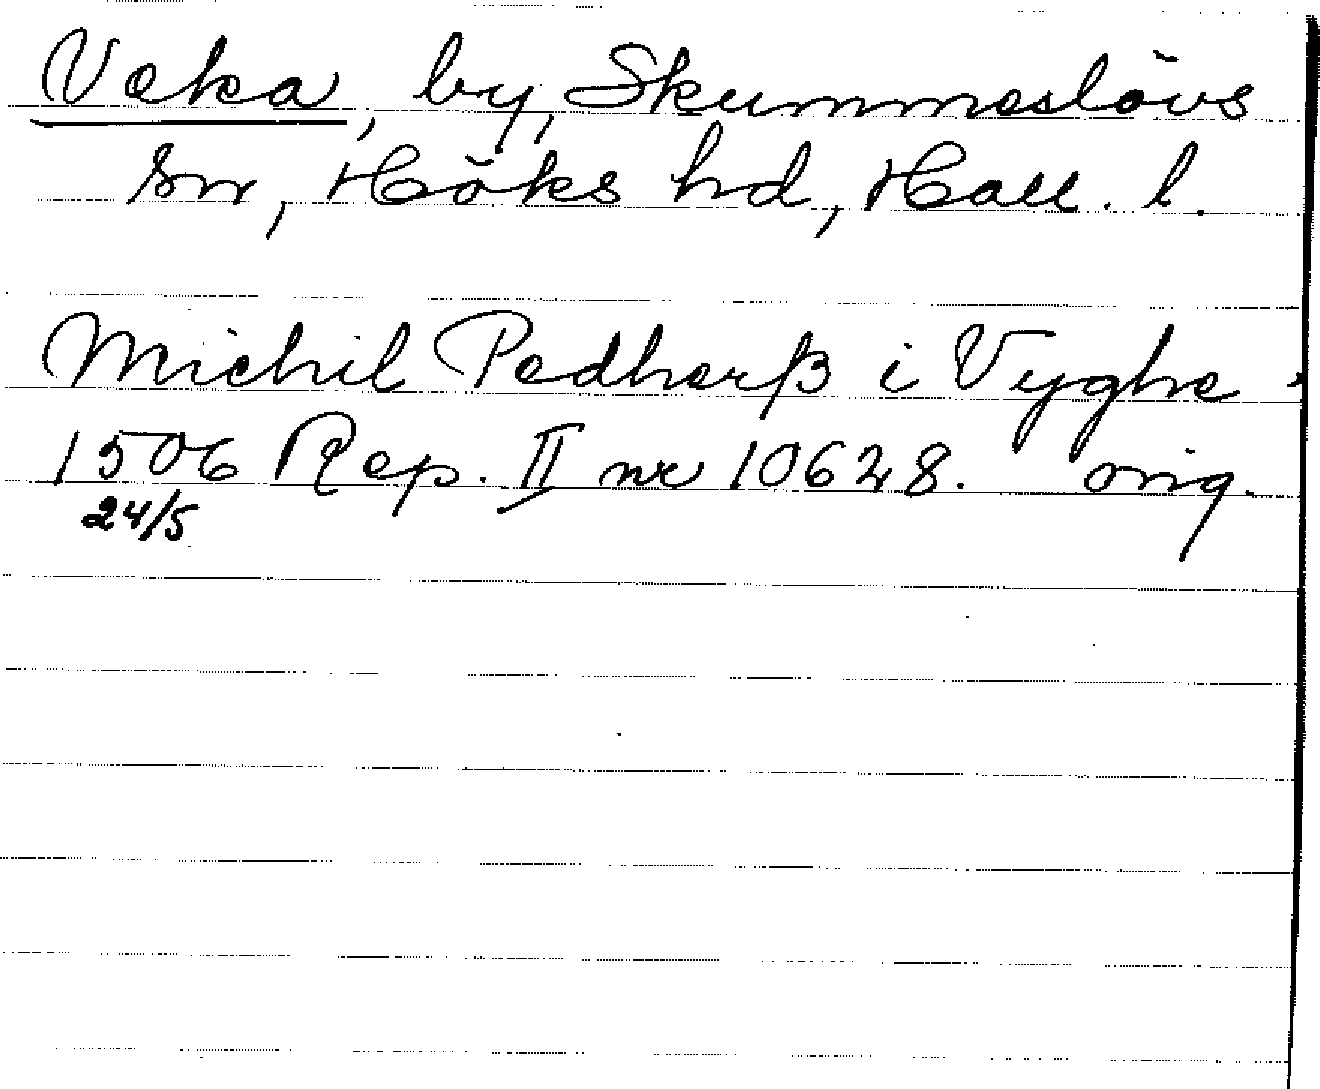 Veka, by, Skummeslövs
sn, Höks hd, Hall. l.
Michil Pedherß i Vyghe
1506 Rep. II nr 10628. orig.
24/5